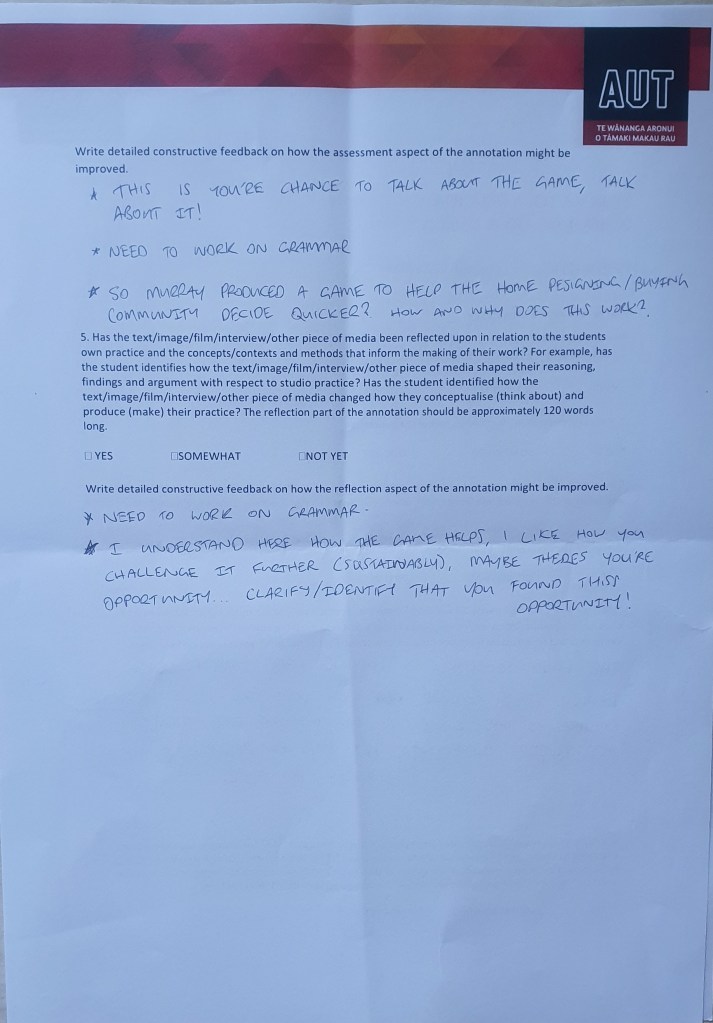 AUT
TE WĀNANGA ARONUI
O TĀMAKI MAKAU RAU
Write detailed constructive feedback on how the assessment aspect of the annotation might be
improved.
* THIS IS YOU'RE CHANCE TO TALK ABOUT THE GAME, TALK
ABOUT IT!
* NEED TO WORK ON GRAMMAR
* SO MURRAY PRODUCED A GAME TO HELP THE HOME DESIGNING/BUYING
COMMUNITY DECIDE QUICKER? HOW AND WHY DOES THIS WORK?
5. Has the text/image/film/interview/other piece of media been reflected upon in relation to the students
own practice and the concepts/contexts and methods that inform the making of their work? For example, has
the student identifies how the text/image/film/interview/other piece of media shaped their reasoning,
findings and argument with respect to studio practice? Has the student identified how the
text/image/film/interview/other piece of media changed how they conceptualise (think about) and
produce (make) their practice? The reflection part of the annotation should be approximately 120 words
long.
☐ YES ☐SOMEWHAT ☐NOT YET
Write detailed constructive feedback on how the reflection aspect of the annotation might be improved.
* NEED TO WORK ON GRAMMAR.
* I UNDERSTAND HERE HOW THE GAME HELPS, I LIKE HOW YOU
CHALLENGE IT FURTHER (SUSTAINABLY), MAYBE THERES YOU'RE
OPPORTUNITY... CLARIFY/IDENTIFY THAT YOU FOUND THISS
OPPORTUNITY!